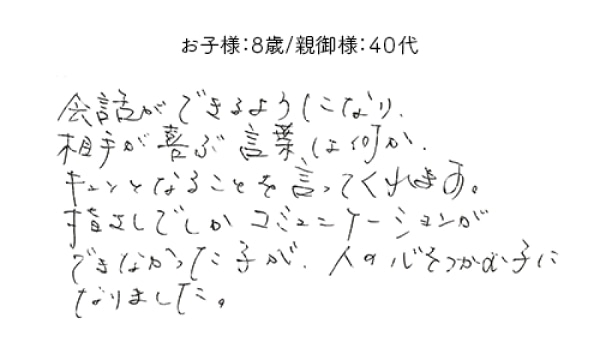 お子様：8歳/親御様：40代
会話ができるようになり、
相手が喜ぶ言葉は何か、
キュンとなることを言ってくれます。
指さしでしかコミュニケーションが
できなかった子が、人の心をつかむ子に
なりました。